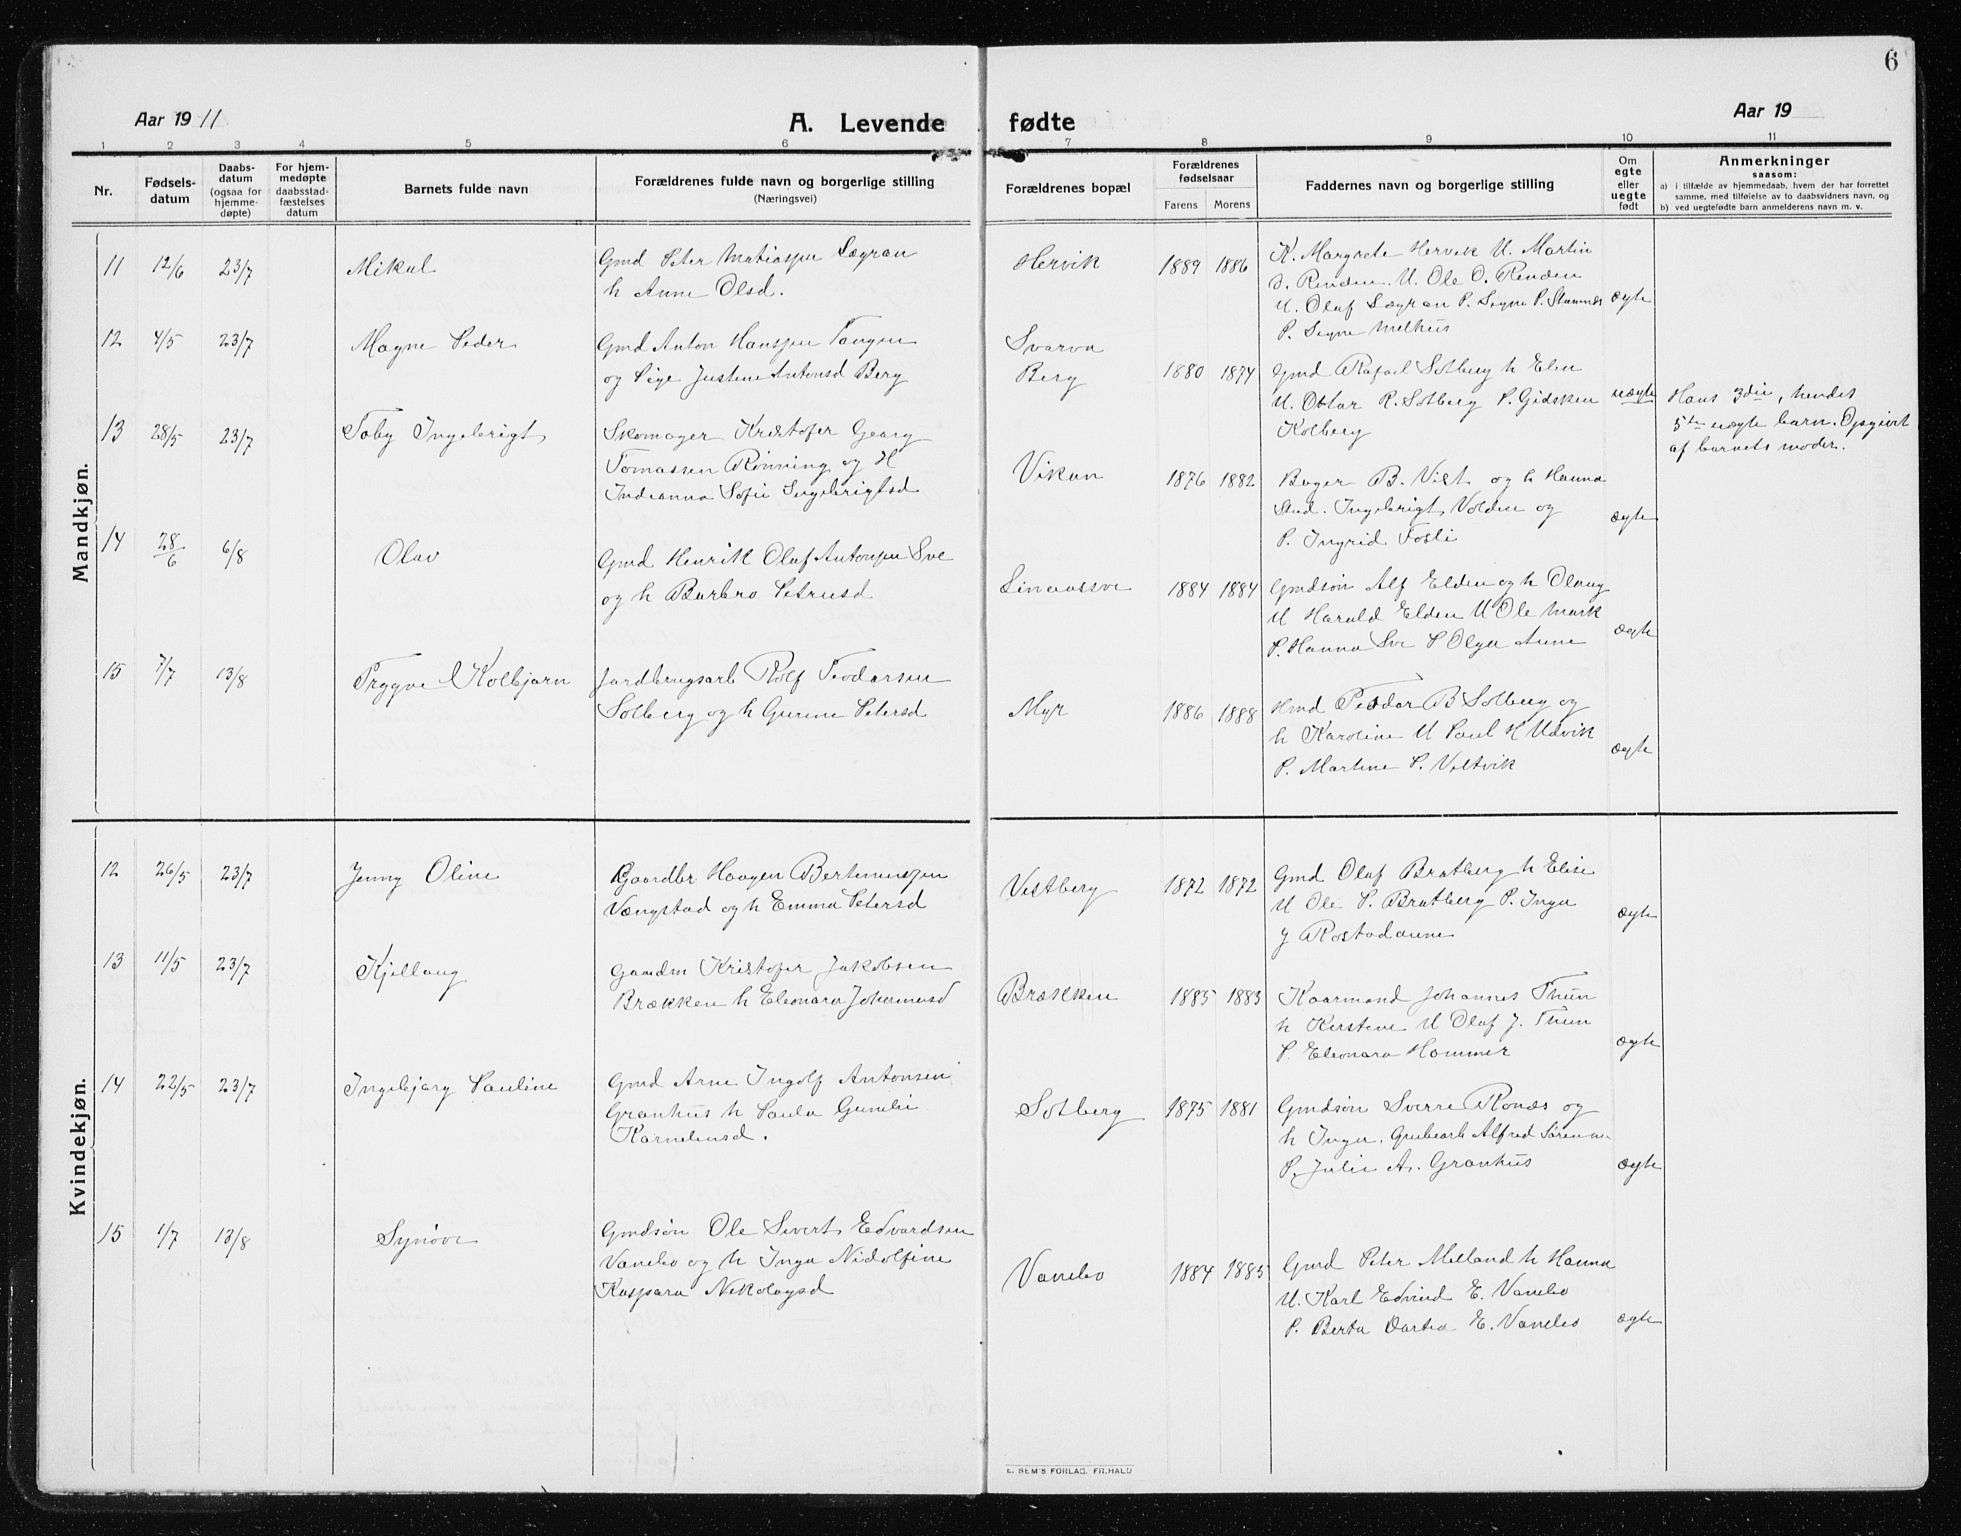 6
Aar 1911
A. Levende fødte
Aar 19
1 2 3 4 5 6 7 8 9 10 11
Nr.
Fødsels-
datum
Daabs-
datum
(ogsaa for
hjemme-
døpte)
For hjem-
medøpte
daabsstad-
fæstelses
datum
Barnets fulde navn
Forældrenes fulde navn og borgerlige stilling
(Næringsvei)
Forældrenes bopæl
Forældrenes
fødselsaar
Farens Morens
Faddernes navn og borgerlige stilling
Om
egte
eller
uegte
født
Anmerkninger
saasom:
a) i tilfælde av hjemmedaab, hvem der har forrettet
samme, med tilføielse av to daabsvidners navn, og
b) ved uegtefødte barn anmelderens navn m. v.
Mandkjøn.
11 12/6 23/7 Mikal
Gmd Peter Matiassen Sægran
h Anne Olsd.
Hervik 1889 1886
K. Margrete Hervik U. Martin
O. Renden. U. Ole O. Renden
U. Olaf Sægran P. Signe P. Stamnes
P. Signe Melhus
ægte
12 4/5 23/7 Magne Peder
Gmd Anton Hanssen Tangen
og Pige Justine Antonsd Berg
Svarva
Berg 1880 1874
Gmd Rafael Solberg h Elen
U. Ottar R. Solberg P. Gidsken
Kolberg
uægte
Hans 3die, hendes
5te uægte barn. Opgivet
af barnets moder.
13 28/5 23/7 Toby Ingebrigt
Skomager Kristofer Georg
Tomassen Rønning og H
Indianna Sofie Ingebrigtsd
Vikan 1876 1882
Bager B. Vist og h Hanna
Stud. Ingebrigt Volden og
P. Ingrid Fosli
ægte
14 28/6 6/8 Olav
Gmd Henrik Olaf Antonsen Sve
og h Barbro Petrusd
Linaassve 1884 1884
Gmdsøn Alf Elden og h Olaug
U Harald Elden U Ole Mark
P. Hanna Sve P Olga Aune
ægte
15 7/7 13/8 Trygve Kolbjørn
Jordbrugsarb Rolf Teodorsen
Solberg og h Gurine Petersd
Myr 1886 1888
Hmd Teodor B Solberg og
h Karoline U Paul H Udvik
P. Martine P. Veltvik
ægte
Kvindekjøn.
12 26/5 23/7 Jenny Oline
Gaardbr Haagen Bertinussen
Vængstad og h Emma Petersd
Vestberg 1872 1872
Gmd Olaf Bratberg h Elise
U Ole P. Bratberg P. Inga
J Rostadaune
ægte
13 11/5 23/7 Kjellaug
Gaardm Kristofer Jakobsen
Brækken h Eleonara Johannesd
Brækken 1885 1883
Kaarmand Johannes Thun
h Kerstine U Olaf J. Thun
P. Eleonara Hammer
ægte
14 22/5 23/7 Ingebjørg Pauline
Gmd Arne Ingolf Antonsen
Granhus h Paula Gunelie
Karneliusd.
Solberg 1875 1881
Gmdsøn Sverre Ronæs og
h Inga. Grubearb Alfred
P. Julie A. Granhus
ægte
15 1/7 13/8 Synøve
Gmdsøn Ole Sivert Edvardsen
Vanebo og h Inga Nidolfine
Kaspara Nikolaysd
Vanebo 1884 1885
Gmd Peter Melland h Hanna
U. Karl Edvind E. Vanebo
P. Berta Dortea E. Vanebo
ægte
E. SEM'S FORLAG. FR.HALD